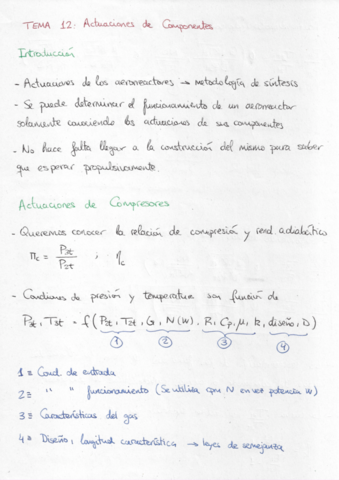 TEMA 12: Actuaciones de Componentes
Introducción
- Actuaciones de los aerorreactores → metodología de síntesis
- Se puede determinar el funcionamiento de un aerorreactor
solamente conociendo las actuaciones de sus componentes
- No hace falta llegar a la construcción del mismo para saber
que esperar propulsivamente.
Actuaciones de Compresores
- Queremos conocer la relación de compresión y rend. adiabático
π_c = P_3t / P_2t ; η_c
- Condiciones de presión y temperatura son función de
P_3t, T_3t = f(P_2t, T_2t, G, N(W), R, C_p, μ, k, diseño, D)
① ② ③ ④
1 ≡ Cond de entrada
2 ≡ " " funcionamiento (Se utiliza N en vez potencia W)
3 ≡ Características del gas
4 ≡ Diseño, longitud característica → leyes de semejanza